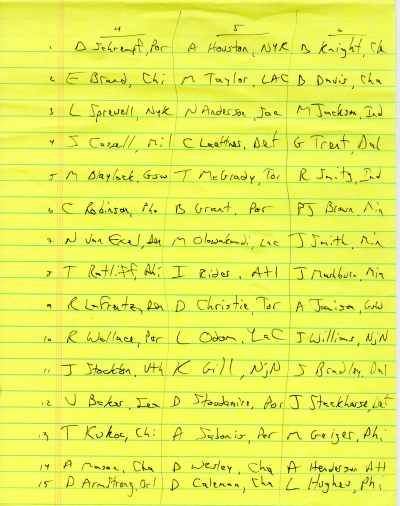 4 5 6
1. D Schrempf, Por A Houston, NYK B Knight, Cle
2 E Brand, Chi M Taylor, LAC B Davis, Cha
3. L Sprewell, NYK N Anderson, Sac M Jackson, Ind
4 S Cassell, Mil C Laettner, Det G Trent, Dal
5 M Blaylock, GSW T McGrady, Tor R Smits, Ind
6 C Robinson, Pho B Grant, Por PJ Brown, Mia
7. N Van Exel, Den M Olowokandi, Lac J Smith, Min
8 T Ratliff, Phi I Rider, Atl J Mashburn, Mia
9 R LaFrentz, Den D Christie, Tor A Jamison, GSW
10 R Wallace, Por L Odom, LaC J Williams, NJN
11 J Stockton, Uth K Gill, NJN S Bradley, Dal
12 V Baker, Sea D Stoudamire, Por J Stackhouse, Det
13 T Kukoc, Chi A Sabonis, Por M Geiger, Phi
14 A Mason, Cha D Wesley, Cha A Henderson Atl
15 D Armstrong, Orl D Coleman, Cha L Hughes, Phi